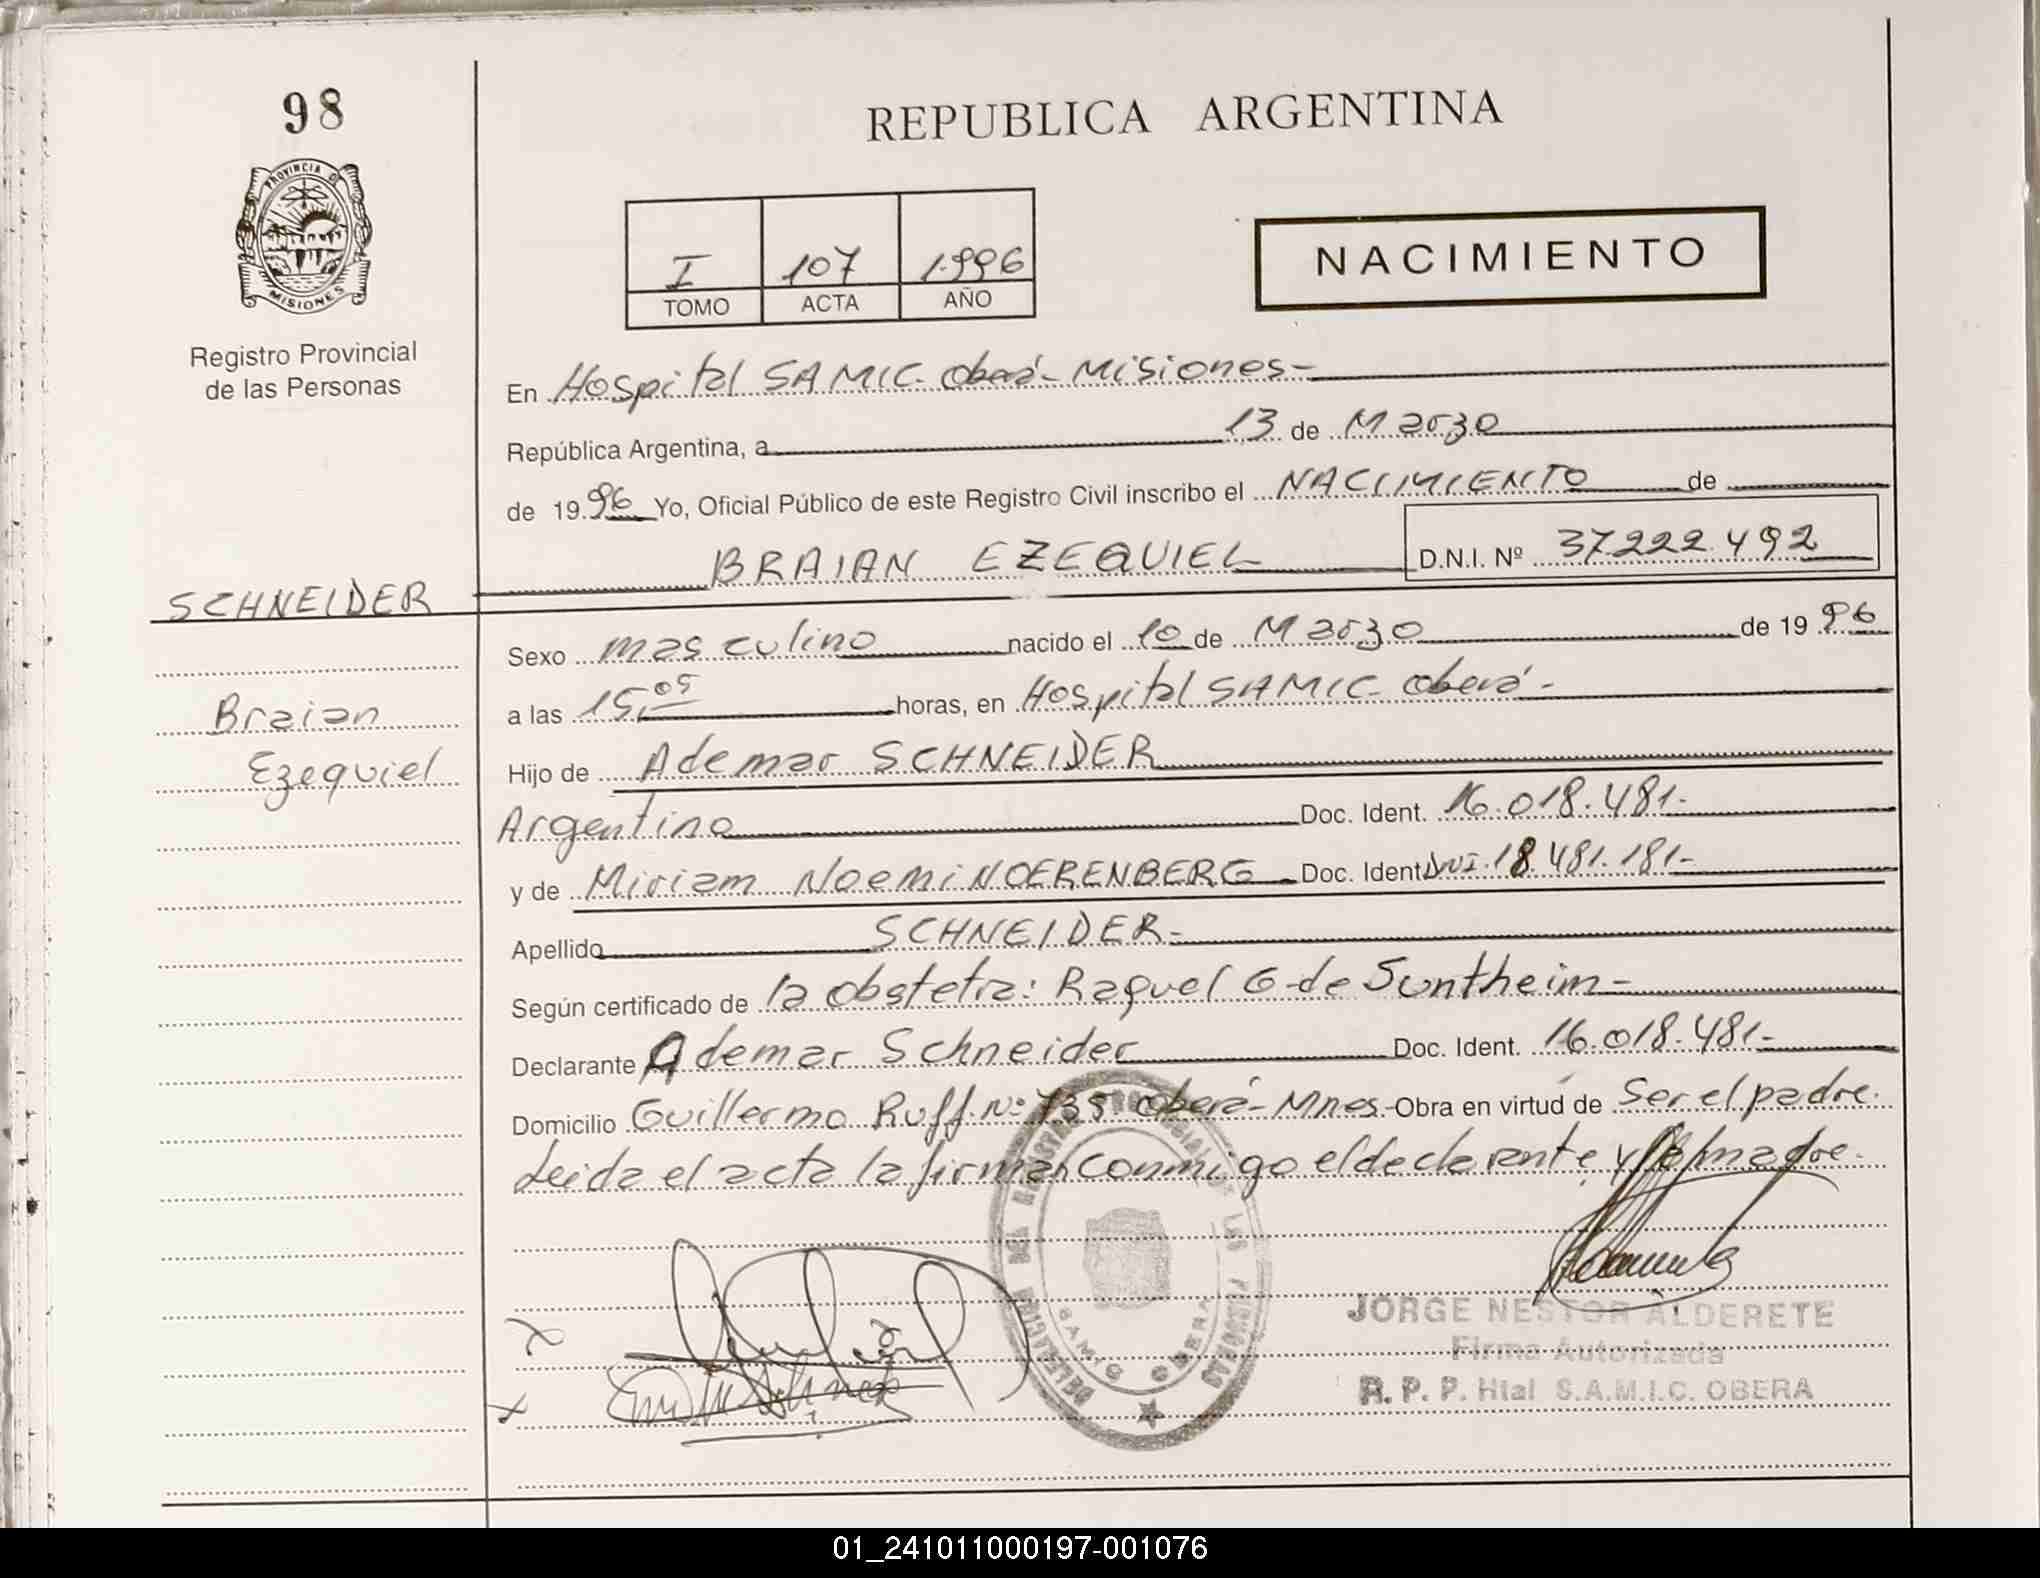 98
REPUBLICA ARGENTINA
PROVINCIA D
MISIONES
Registro Provincial
de las Personas
I 107 1.996
TOMO ACTA AÑO
NACIMIENTO
En Hospital SAMIC. Oberá - Misiones -
República Argentina, a 13 de Marzo
de 1996 Yo, Oficial Público de este Registro Civil inscribo el NACIMIENTO de
BRAIAN EZEQUIEL D.N.I. Nº 37.222.492
SCHNEIDER
Braian
Ezequiel
Sexo masculino nacido el 10 de Marzo de 1996
a las 15,05 horas, en Hospital SAMIC - Oberá -
Hijo de Ademar SCHNEIDER
Argentino Doc. Ident. 16.018.481.-
y de Miriam Noemi NOERENBERG Doc. Ident. DNI. 18.481.181.-
Apellido SCHNEIDER.-
Según certificado de la obstetra: Raquel G. de Suntheim -
Declarante Ademar Schneider Doc. Ident. 16.018.481.-
Domicilio Guillermo Ruff. Nº 735 Oberá - Mnes - Obra en virtud de Ser el padre.
Leida el acta la firman conmigo el declarante y la madre.
DELEGACION DEL REGISTRO PROVINCIAL DE LAS PERSONAS
SAMIC OBERA
JORGE NESTOR ALDERETE
Firma Autorizada
R. P. P. Htal S.A.M.I.C. OBERA
01_241011000197-001076